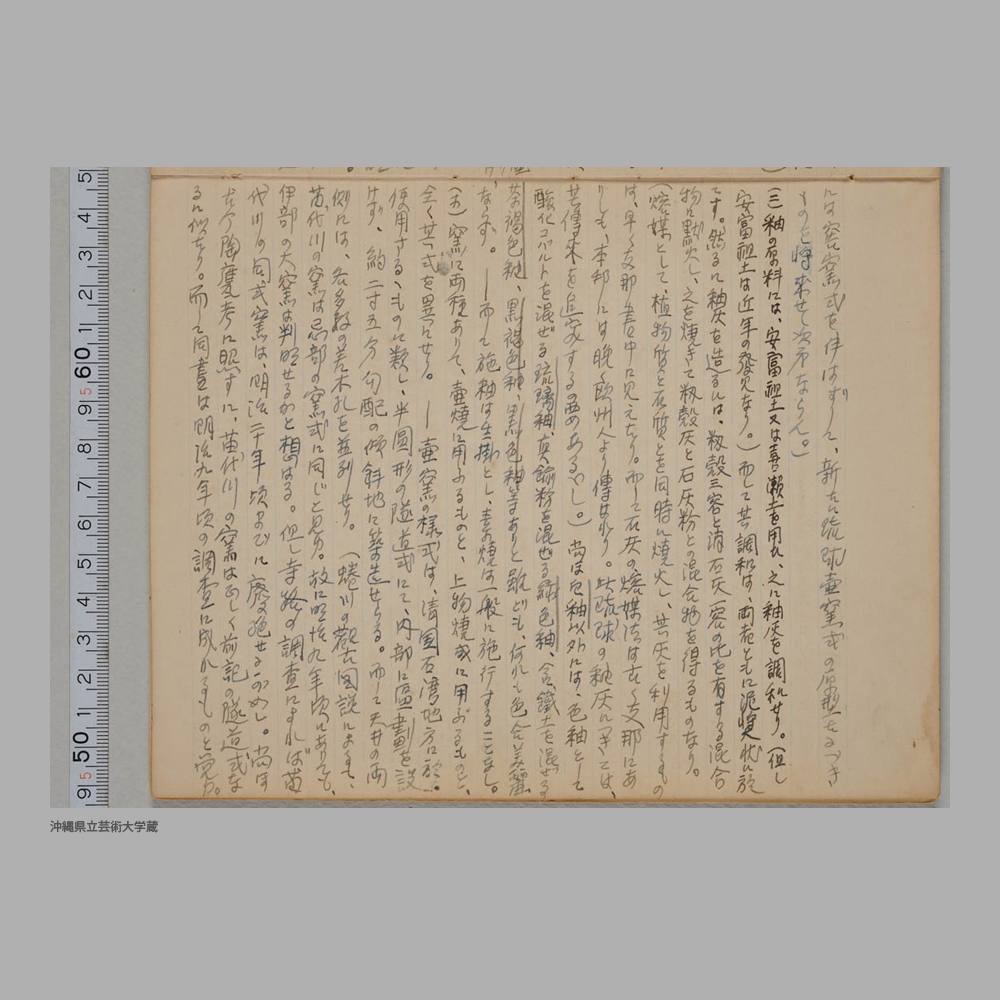 には窖窯式を伴はずして、新たに琉球壷窯式の原型をみづき
ものを将来せし次第ならん。)
(三) 釉の原料には、安富祖土又は喜瀬土を用ゐ、之に釉灰を調和せり。(但し
安富祖土は近年の發見なり。)而して其調和は、両者ともに泥漿状に於
てす。然るに釉灰を造るには、籾殻三容と消石灰一容の比を有する混合
物に點火し、之を焼きて籾殻灰と石灰粉との混合物を得るものなり。
(熔媒として、植物質と石質とを同時に焼火し、其灰を利用するもの
は、早く支那書中に見えたり。而して石灰の熔媒法は古く支那にあ
りしも、本邦には晩く欧州人より傳はれり。此琉球の釉灰に于ては、
其傳来を追究するの要あるべし。)尚ほ白釉以外には、色釉として
酸化コバルトを混ぜる琉璃釉、真鍮粉を混ぜる緑色釉、含鐵土を混ぜる
茶褐色釉、黒褐色釉、黒色釉等ありと雖ども、何れも色合美麗
ならず。—而して施釉は生掛とし、素焼は一般に施行することなし。
(五)窯に両種ありて、壷焼に用ふるものと、上物焼成に用ふるものと、
全く其式を異にせり。—壷窯の様式は、清国石湾地方に於て
使用するものに類し、半圓形の隧道式にて、内部に區劃を設
けず、約二寸五分勾配の傾斜地に築造せらる。而して天井の両
側には、各多数の差木孔を並列せり。(蜷川の觀古図説によるも、
苗代川の窯は忌部の窯式に同じと見ゆ。故に明治九年頃にありても、
伊部の大窯は判明せるかと想はる。但し寺の調査によれば苗
代川の同式窯は、明治二十年頃までに廢絶せるかめし。尚ほ
大分陶甕考に照すに、苗代川の窯はしく前記の隧道式な
るに似たり。而して同書は明治九年頃の調査に成れるものと覚ゆ。
沖縄県立芸術大学蔵